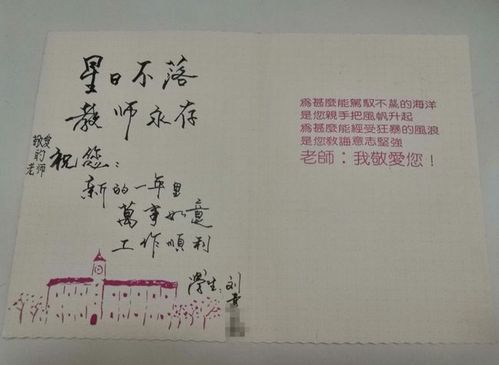 星日不落
教師永存
敬爱
的
老师
祝您：
新的一年里
萬事如意
工作順利
学生：刘
爲甚麽能駕馭不羈的海洋
是您親手把風帆升起
爲甚麽能經受狂暴的風浪
是您教誨意志堅強
老師：我敬愛您！